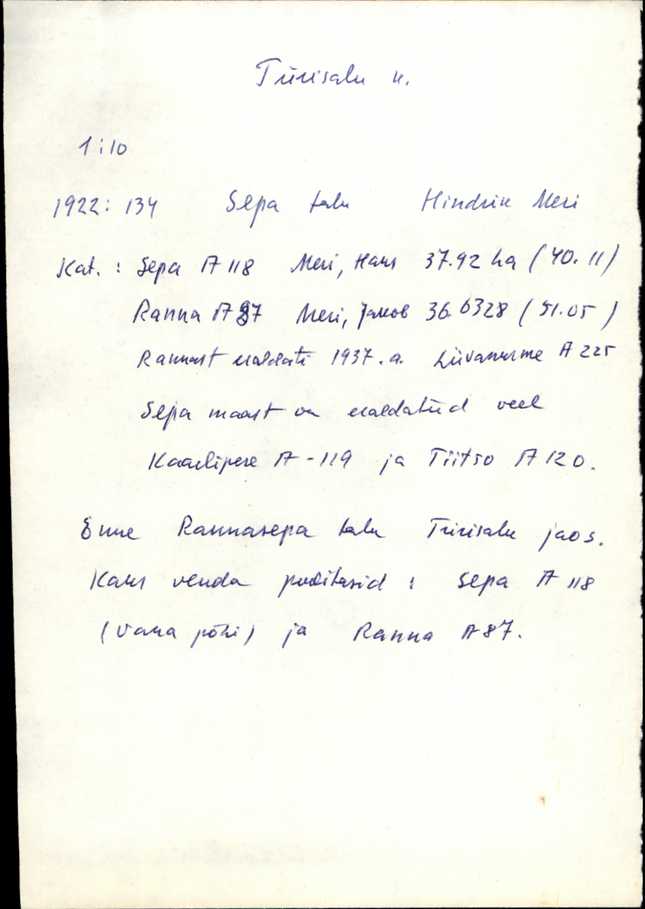 Türisalu k.
1:10
1922: 134 Sepa talu Hindrik Meri
Kat.: Sepa A 118 Meri, Hans 37.92 ha (40.11)
Ranna A 87 Meri, Jakob 36.6328 (51.05)
Rannast eraldati 1937.a. Liivanurme A 225
Sepa maast on eraldatud veel
Kaarlipere A-119 ja Tiitso A 120.
Enne Rannasepa talu Türisalu jaos.
Kaks venda poolitasid: Sepa A 118
(vana põhi) ja Ranna A 87.